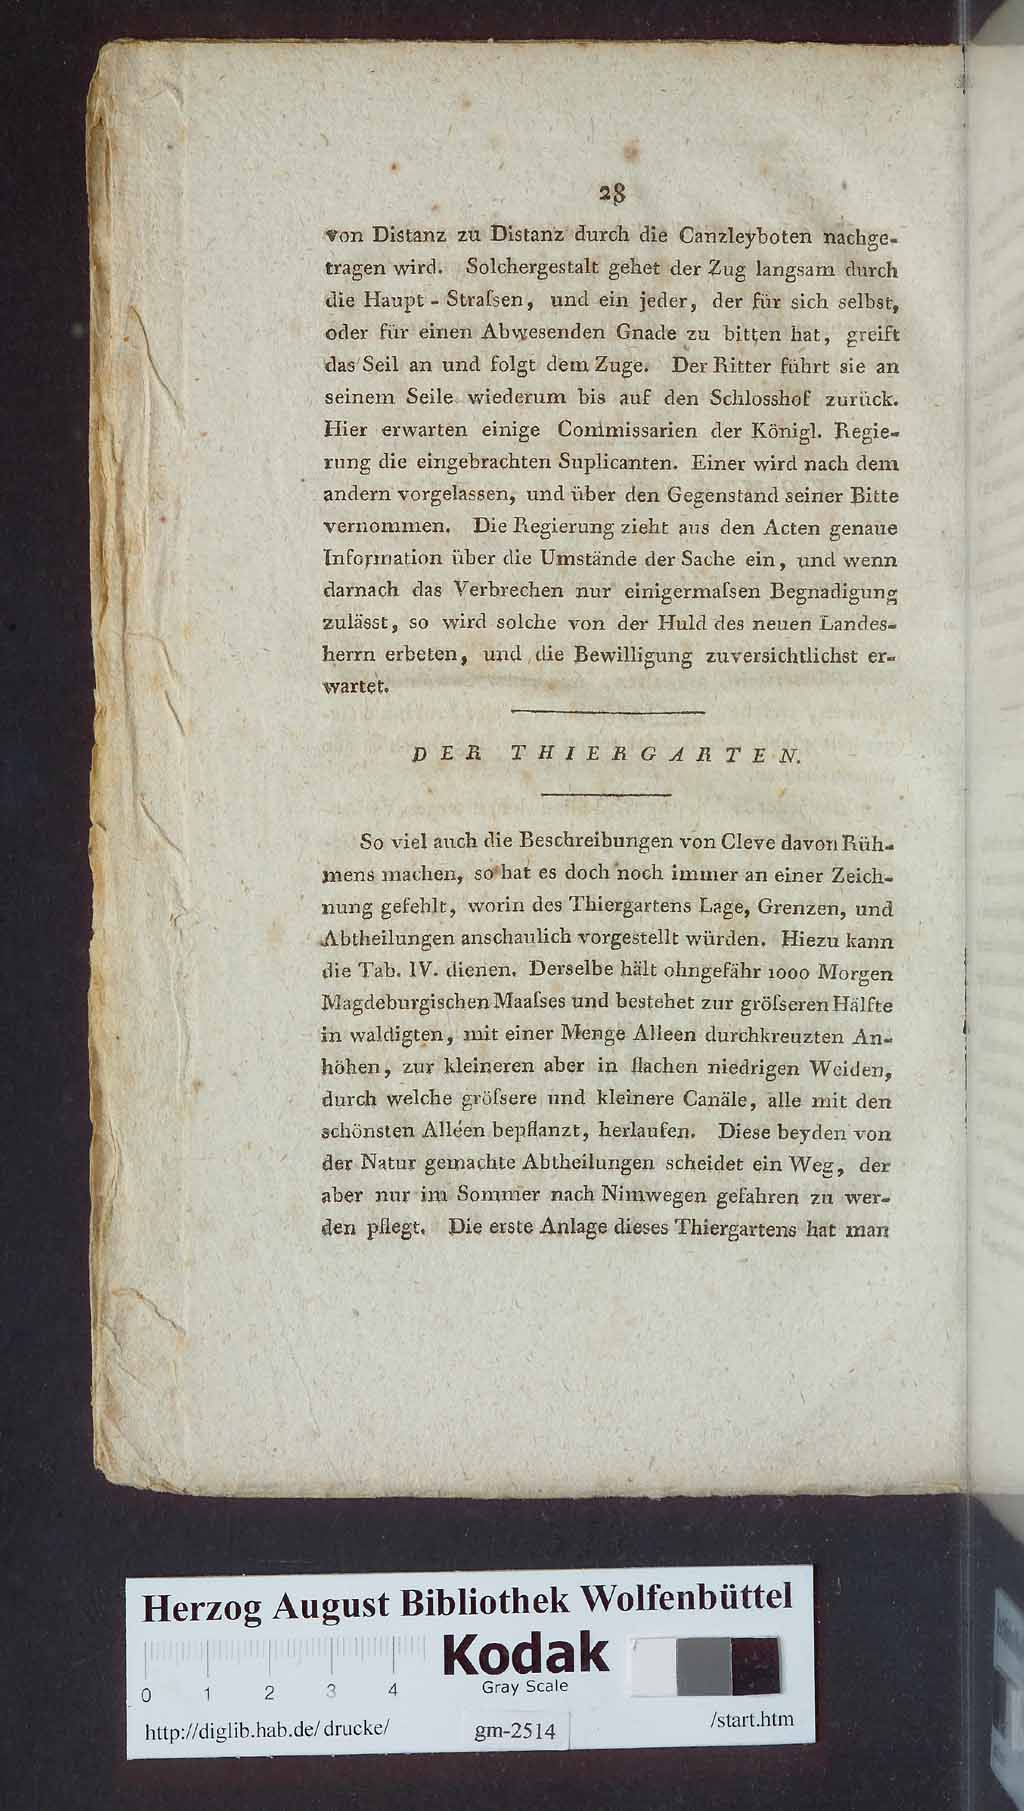 28
von Distanz zu Distanz durch die Canzleyboten nachge-
tragen wird. Solchergestalt gehet der Zug langsam durch
die Haupt - Straſsen, und ein jeder, der für sich selbst,
oder für einen Abwesenden Gnade zu bitten hat, greift
das Seil an und folgt dem Zuge. Der Ritter führt sie an
seinem Seile wiederum bis auf den Schlosshof zurück.
Hier erwarten einige Commissarien der Königl. Regie-
rung die eingebrachten Suplicanten. Einer wird nach dem
andern vorgelassen, und über den Gegenstand seiner Bitte
vernommen. Die Regierung zieht aus den Acten genaue
Information über die Umstände der Sache ein, und wenn
darnach das Verbrechen nur einigermaſsen Begnadigung
zulässt, so wird solche von der Huld des neuen Landes-
herrn erbeten, und die Bewilligung zuversichtlichst er-
wartet.
DER THIERGARTEN.
So viel auch die Beschreibungen von Cleve davon Rüh-
mens machen, so hat es doch noch immer an einer Zeich-
nung gefehlt, worin des Thiergartens Lage, Grenzen, und
Abtheilungen anschaulich vorgestellt würden. Hiezu kann
die Tab. IV. dienen. Derselbe hält ohngefähr 1000 Morgen
Magdeburgischen Maaſses und bestehet zur gröſseren Hälfte
in waldigten, mit einer Menge Alleen durchkreuzten An-
höhen, zur kleineren aber in flachen niedrigen Weiden,
durch welche gröſsere und kleinere Canäle, alle mit den
schönsten Alléen bepflanzt, herlaufen. Diese beyden von
der Natur gemachte Abtheilungen scheidet ein Weg, der
aber nur im Sommer nach Nimwegen gefahren zu wer-
den pflegt. Die erste Anlage dieses Thiergartens hat man
Herzog August Bibliothek Wolfenbüttel
Kodak
Gray Scale
0 1 2 3 4
http://diglib.hab.de/drucke/ gm-2514 /start.htm